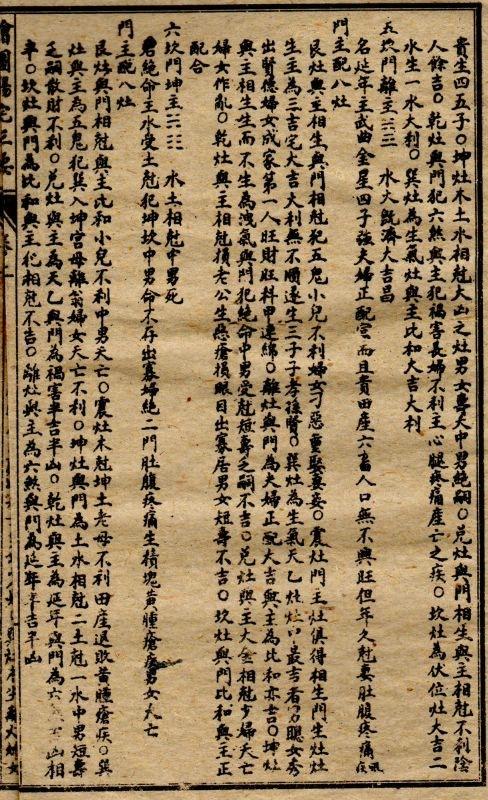 貴生四五子○坤灶木土水相尅大凶之灶男女壽夭中男絶嗣○兌灶與門相生與主相尅不利陰
人餘吉○乾灶與門犯六煞與主犯禍害長婦不利主心腿疼痛產亡之疾○坎灶為伏位灶大吉二
水生一木大利○巽灶為生氣灶與主比和大吉大利
五坎門離主☵☲ 水火旣濟大吉昌
名延年主武曲金星四子強夫婦正配宮而且貴田產六畜人口無不興旺但年久尅妻肚腹疼痛
門主配八灶
艮灶與主相生與門相尅犯五鬼小兒不利婦女刁惡重娶妻妾○震灶門主灶俱得相生門生灶灶
生主為三吉宅大吉大利無不順遂生三子子孝孫賢○巽灶為生氣天乙灶灶口最吉者男聰女秀
出賢德婦女成家第一人旺財旺科甲連綿○離灶與門為夫婦正配大吉與主為比和亦吉○坤灶
與主相生生而不生為洩氣與門犯絶命中男受尅短壽乏嗣不吉○兌灶與主火金相尅少婦夭亡
婦女作亂○乾灶與主相尅損老公生惡瘡損眼目出寡居男女短壽不吉○坎灶與門比和與主正
配合
六坎門坤主☵☷ 水土相尅中男死
名絶命主水受土尅犯坤坎中男命不存出寡婦絶二門肚腹疼痛生積塊黃腫瘡男女夭亡
門主配八灶
艮灶與門相尅與主比和小兒不利中男夭亡○震灶木尅坤土老母不利田產退敗黃腫瘡疾○巽
灶與主為五鬼犯巽入坤宮母離翁婦女夭亡不利○坤灶與門為土水相尅二土尅一水中男短壽
乏嗣散財不利○兌灶與主為天乙與門為禍害半吉半凶○乾灶與主為延年與門為六凶相
半○坎灶與門為比和與主犯相尅不吉○離灶與主為六煞與門為延年半吉半凶